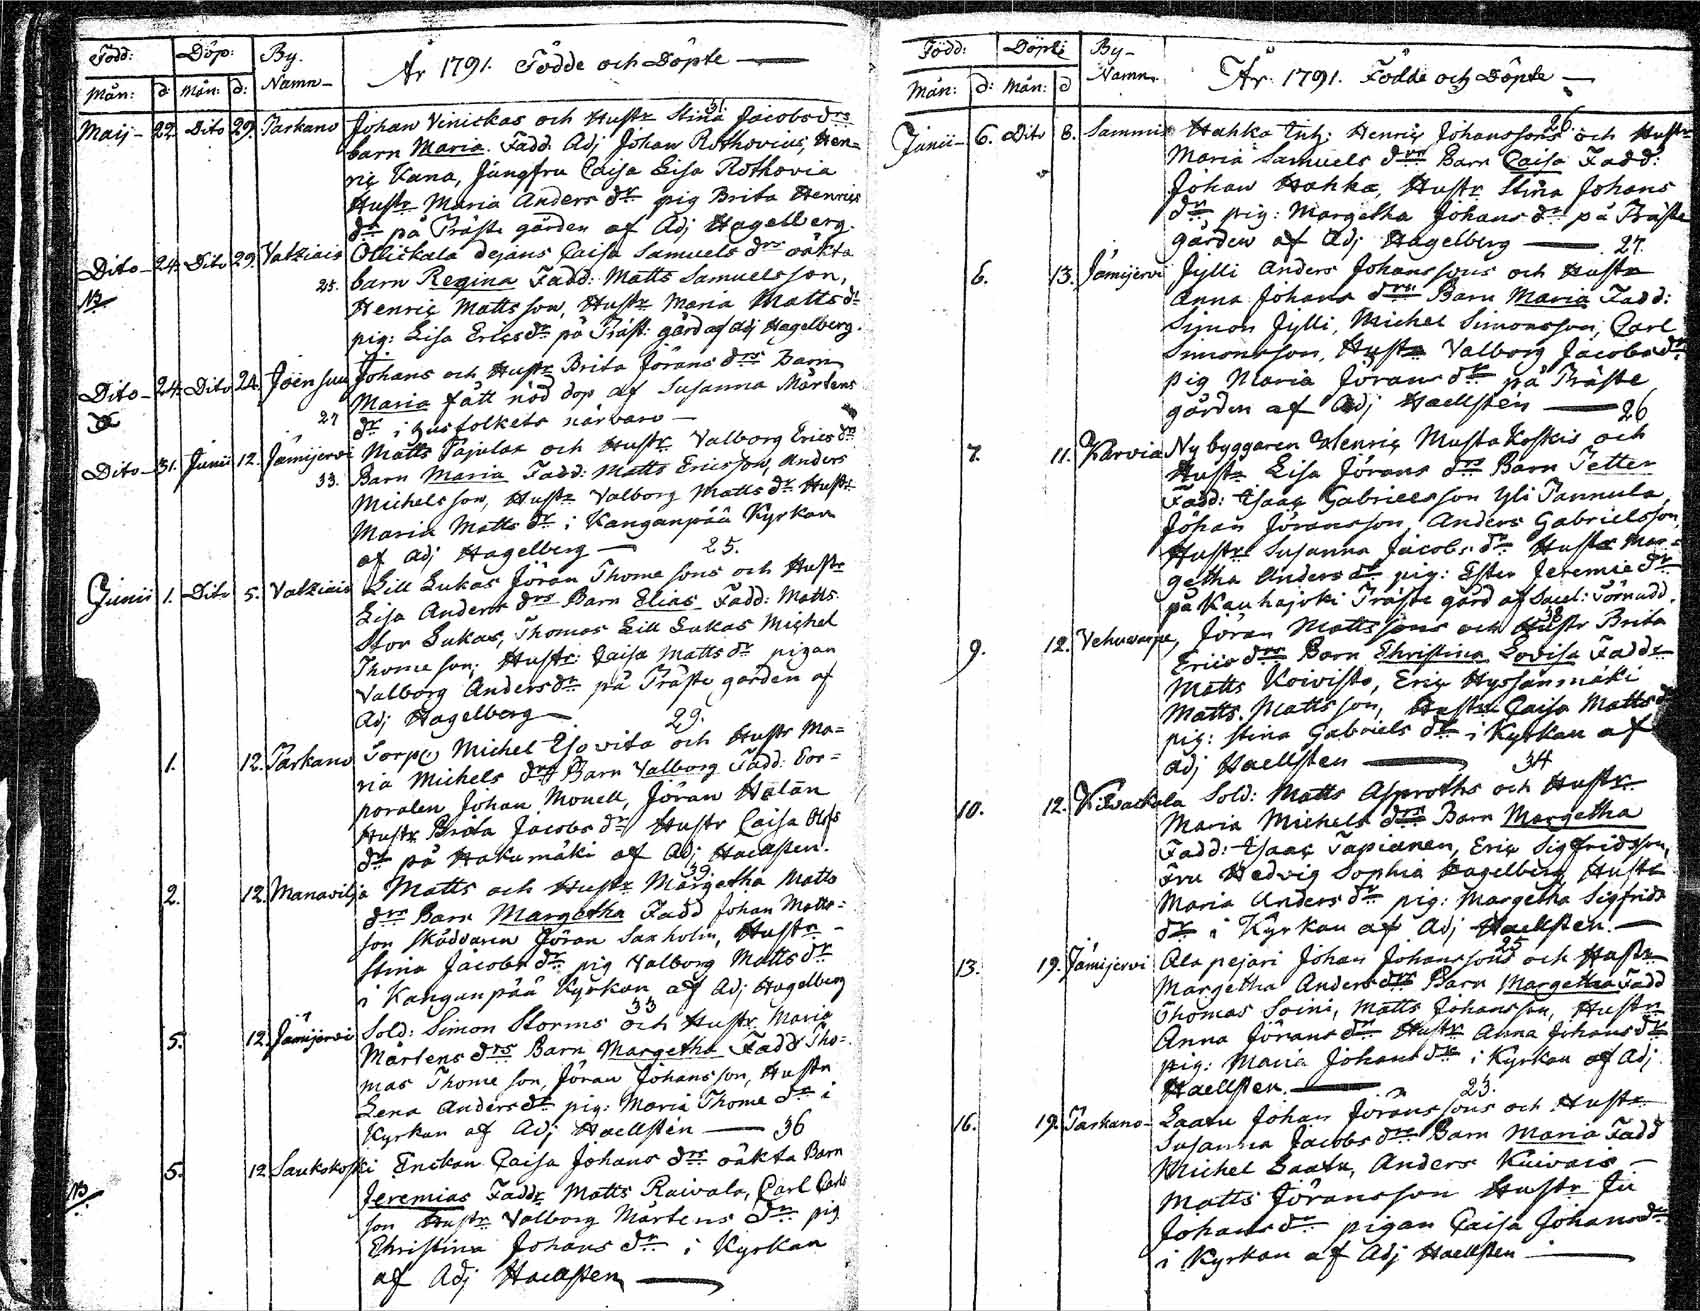 Född: Döp: By- År 1791. Födde och Döpte
Mån: d Mån: d: Namn
Maij 22 Dito 29. Parkano Johan Vinickas och Hustr Stina Jacobs drs 31.
barn Maria Fadd. Adj Johan Rothovius, Hen=
ric Kana, Jungfru Caisa Lisa Rothovia
Hustr Maria Anders dr pig Brita Henrics
dr på Präste gården af Adj Hagelberg.
Dito 24. Dito 29. Vatziais Ollickala dejans Caisa Samuels drs oäkta
NB 25. barn Regina Fadd: Matts Samuelsson,
Henric Mattsson, Hustr Maria Matts dr
pig: Lisa Erics dr på Präst: gård af Adj Hagelberg.
Dito 24. Dito 24. Joensuu Johans och Hustr Brita Jörans drs Barn
Maria fått nöd dop af Susanna Mårtens
27 dr i husfolkets närvaro
Dito 31. Junii 12. Jämijervi Matts Pajulax och Hustr Valborg Erics drs
33. Barn Maria Fadd: Matts Ericsson, Anders
Michelsson, Hustr Valborg Matts dr Hustr
Maria Matts dr i Kanganpää Kyrkan
af Adj Hagelberg 25.
Junii 1. Dito 5. Vatziais Lill Lukas Jöran Thomesons och Hustr
Lisa Anders drs Barn Elias Fadd: Matts
Stor Lukas, Thomas Lill Lukas Michel
Thomeson, Hustr: Caisa Matts dr pigan
Valborg Anders dr på Präste gården af
Adj Hagelberg 29.
1. 12. Parkano Torp Michel Isovita och Hustr Ma=
ria Michels drs Barn Valborg Fadd: Cor=
poralen Johan Monell, Jöran Hatän
Hustr Brita Jacobs dr Hustr Caisa Olofs
dr på Hakumäki af Adj Haellsten.
2. 12. Manavilja Matts och Hustr Margetha Matts 39.
drs Barn Margetha Fadd Johan Matts=
son Skäddaren Jöran Saxholm, Hustr
Stina Jacobs dr pig Valborg Matts dr
i Kanganpää Kyrkan af Adj Hagelberg
5. 12. Jämijervi Sold: Simon Storms och Hustr Maria 33
Mårtens drs Barn Margetha Fadd Tho=
mas Thomeson, Jöran Johansson, Hustr
Lena Anders dr pig: Maria Thome dr i
Kyrkan af Adj Haellsten 36
5. 12 Laukokoski Enckan Caisa Johans drs oäkta Barn
NB Jeremias Fadd: Matts Raivala, Carl Carls
son Hustr Valborg Mårtens dr pig
Christina Johans dr i Kyrkan
af Adj Haellsten
Född: Döpt: By- År 1791. Födde och Döpte
Mån: d: Mån: d Namn
Junii 6. Dito 8. Sammi Hahka Inh: Henric Johanssons och Hustr 26
Maria Samuels drs Barn Caisa Fadd:
Johan Hahka, Hustr Stina Johans
dr, pig: Margetha Johans dr på Präste
gården af Adj Hagelberg 27.
6. 13. Jämijervi Jylli Anders Johanssons och Hustr
Anna Johans drs Barn Maria Fadd:
Simon Jylli, Michel Simonsson, Carl
Simonsson, Hustr Valborg Jacobs dr
pig Maria Jörans dr på Präste
gården af Adj Haellsten 26
7. 11. Karvia Nybyggaren Henric Mustakoskis och
Hustr Lisa Jörans drs Barn Petter
Fadd: Isaac Gabrielsson Yli Pannula,
Johan Jöransson, Anders Gabrielsson,
Hustr Susanna Jacobs dr Hustr Mar=
getha Anders dr pig: Ester Jeremie dr
på Kauhajoki Präste gård af Sacel: Törnudd.
9. 12. Vehuvarpe Jöran Mattssons och Hustr Brita 38
Erics drs Barn Christina Lovisa Fadd:
Matts Koivisto, Eric Hyssänmäki
Matts Mattsson, Hustr Caisa Matts dr
pig: Stina Gabriels dr i Kyrkan af
Adj Haellsten 34
10. 12. Kilvackala Sold: Matts Asproths och Hustr
Maria Michels drs Barn Margetha
Fadd: Isaac Tapianen, Eric Sigfridsson,
Fru Hedvig Sophia Hagelberg Hustr
Maria Anders dr pig: Margetha Sigfrids
dr i Kyrkan af Adj Haellsten.
13. 19. Jämijervi Ala pejari Johan Johanssons och Hustr 25
Margetha Anders drs Barn Margetha Fadd
Thomas Soini, Matts Johansson, Hustr
Anna Jörans dr Hustr Anna Johans dr
pig: Maria Johans dr i Kyrkan af Adj
Haellsten. 23.
16. 19. Parkano Laatu Johan Jöranssons och Hustr
Susanna Jacobs drs Barn Maria Fadd
Michel Laatu, Anders Kuivais
Matts Jöransson Hustr
Johans dr pigan Caisa Johans dr
i Kyrkan af Adj Haellsten